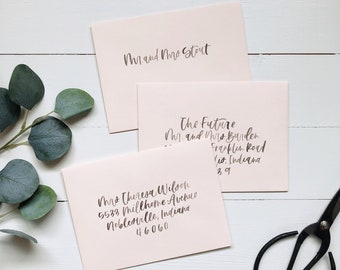 Mr and Mrs Stout
The Future
Mr. and Mrs. Burden
Franklin Road
Indiana
9
Mrs Theresa Wilson
5538 Millhome Avenue
Noblesville, Indiana
46060